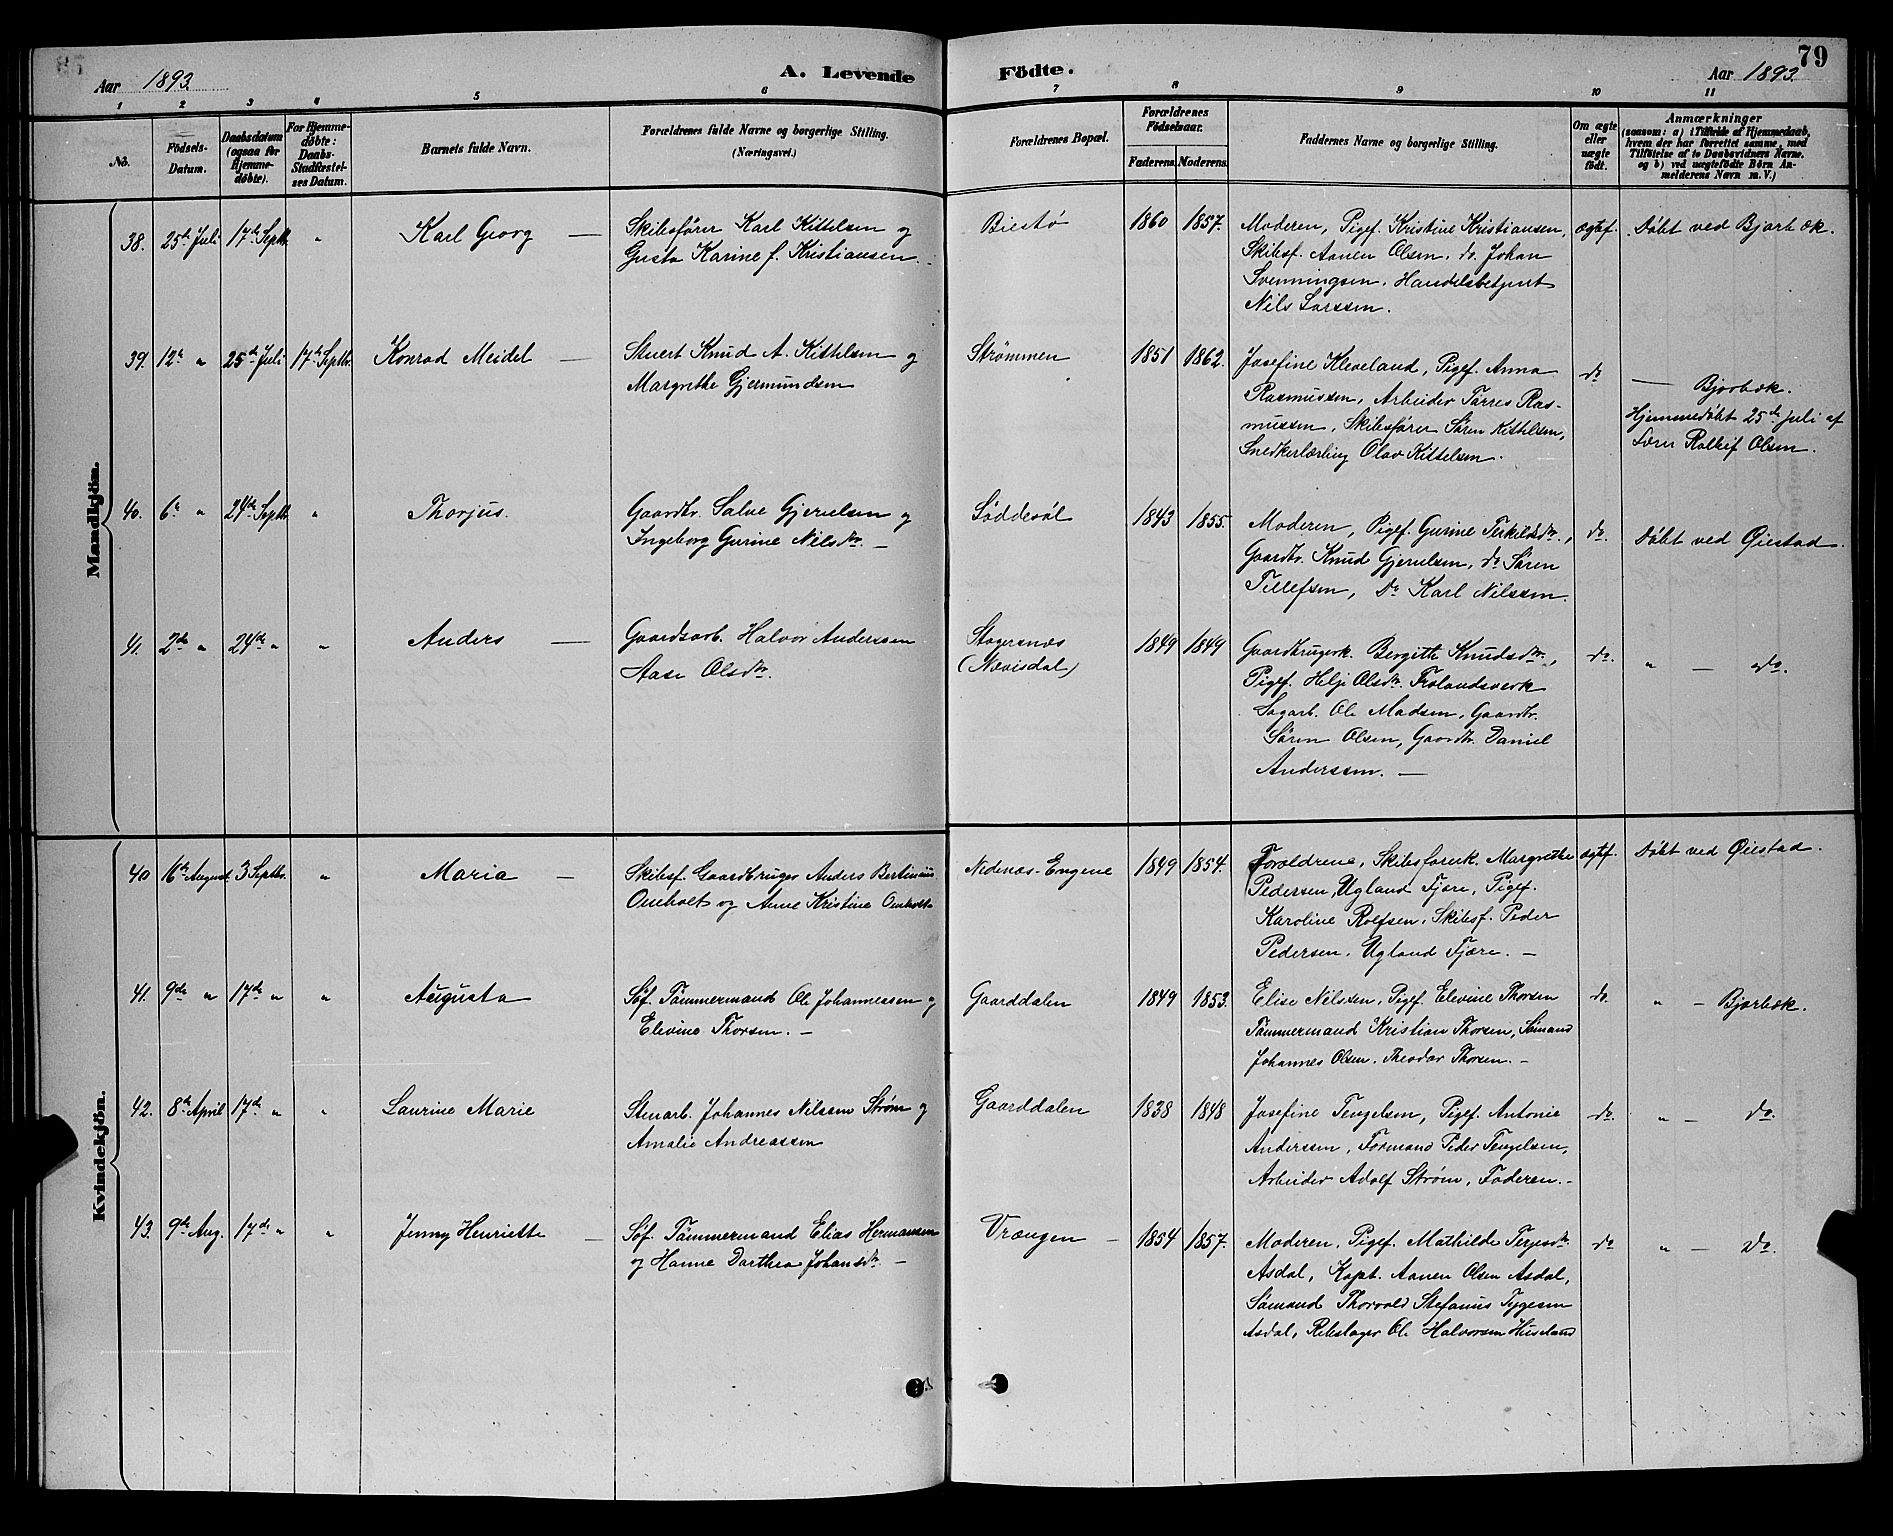 Aar 1893.
A. Levende Födte.
Aar 1893.
79
1 2 3 4 5 6 7 8 9 10 11
No.
Födsels-
Datum.
Daabsdatum
(ogsaa for
Hjemme-
döbte).
For Hjemme-
döbte:
Daabs-
Stadfæstel-
ses Datum.
Barnets fulde Navn.
Forældrenes fulde Navne og borgerlige Stilling.
(Næringsvei.)
Forældrenes Bopæl.
Forældrenes
Födselsaar.
Faderens. Moderens.
Faddernes Navne og borgerlige Stilling.
Om ægte
eller
uægte
födt.
Anmærkninger
(saasom: a) i Tilfælde af Hjemmedaab,
hvem der har forrettet samme, med
Tilföielse af to Daabsvidners Navne,
og b) ved uægtefödte Börn An-
melderens Navn m. V.)
Mandkjön.
38. 25de Juli 17de Septbr. " Karl Georg —
Skibsfører Karl Kittelsen og
Gusta Karine f. Kristiansen. -
Biestø 1860 1857.
Moderen, Pigef. Kristine Kristiansen,
Skibsf. Aanen Olsen. do. Johan
Svenningsen. Handelsbetjent
Nils Larssen.
ægtef. Døbt ved Bjorbæk.
39. 12te " 25de Juli 17de Septbr. Konrad Meidel —
Stuert Knud A. Kittelsen og
Margrethe Gjermundsen
Strømmen 1851 1862.
Josefine Kleveland, Pigef. Anna
Rasmussen, Arbeider Tarres Ras-
mussen, Skibsfører Søren Kittelsen,
Snedkerlærling Olav Kittelsen.
do
— Bjorbæk.
Hjemmedøbt 25de juli af
Olsen.
40. 6te " 24de Septbr. " Thorjus.
Gaardbr. Salve Gjerulsen og
Ingeborg Gurine Nilsdtr. —
Søddesøl 1843 1855.
Moderen, Pigef. Gurine Terkildsdtr.,
Gaardbr. Knud Gjerulsen, do Søren
Tellefsen, Do Karl Nilssen.
do. Døbt ved Øiestad.
41. 2de " 24de " " Anders —
Gaardsarb. Halvor Anderssen
Aase Olsdtr.
(Nævisdal)
1849 1849
Gaardbrugerk. Bergith Knudsdtr.,
Pigef. Helje Olsdtr. Frolandsverk
Sagarb. Ole Madsen, Gaardbr.
Søren Olsen, Gaardbr. Daniel
Anderssen. —
do. " — do.
Kvindekjön.
40 16de August 3 Septbr. " Maria —
Skibsf. Gaardbruger Anders Bertinius
Omholt og Anne Kristine Omholt
Nedenæs-Engene 1849 1854.
Forældrene, Skibsførerk. Margrethe
Pedersen, Ugland Fjære, Pigef.
Karoline Rolfsen, Skibsf. Peder
Pedersen, Ugland Fjære. —
ægtef. Døbt ved Øiestad.
41. 9de " 17de " " Augusta
Søf. Tømmermand Ole Johannessen og
Elevine Thorsen. —
Gaarddalen 1849 1853.
Elise Nilssen, Pigef. Elevine Thorsen
Tømmermand Kristian Thorsen, Sømand
Johannes Olsen. Theodor Thorsen. —
do. " — Bjorbæk.
42. 8de April 17de " " Laurine Marie
Stenarb. Johannes Nilssen Strøm og
Amalie Andreassen
Gaarddalen 1838 1848
Josefine Tengelsen, Pigef. Antonie
Anderssen, Formand Peder Tengelsen,
Arbeider Adolf Strøm, Faderen. —
do. " — do.
43. 9de Aug. 17de " " Jenny Henriette —
Søf. Tømmermand Elias Hermansen
og Hanne Dorthea Johansdtr. —
Vrængen — 1854 1857.
Moderen, Pigef. Mathilde Terjesdtr.
Asdal, Kapt. Aanen Olsen Asdal,
Sømand Thorvald Stefanus Tygesen
Asdal, Rebslager Ole Halvorsen Huseland
do " — Do.